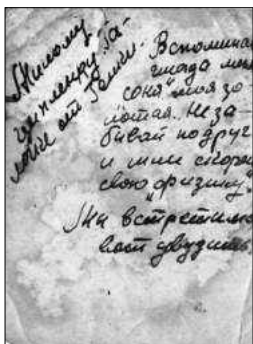 Милому
ципленку "Га-
лочке от Гени.
Вспоминай
иногда меня
соня" моя зо-
лотая. Не за-
бывай подруг
и шли скорей
свою "физию".
Мы встретим
вот увидишь